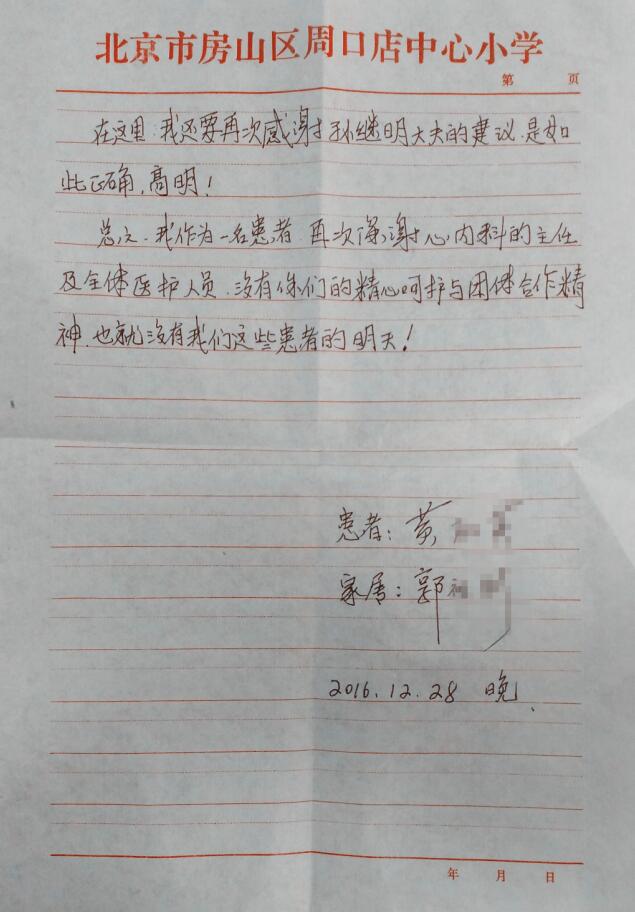 北京市房山区周口店中心小学
第 页
在这里,我还要再次感谢孙继明大夫的建议,是如
此正确,高明!
总之,我作为一名患者,再次深谢心内科的主任
及全体医护人员,没有你们的精心呵护与团体合作精
神,也就没有我们这些患者的明天!
患者:黄
家属:郭
2016.12.28 晚
年 月 日